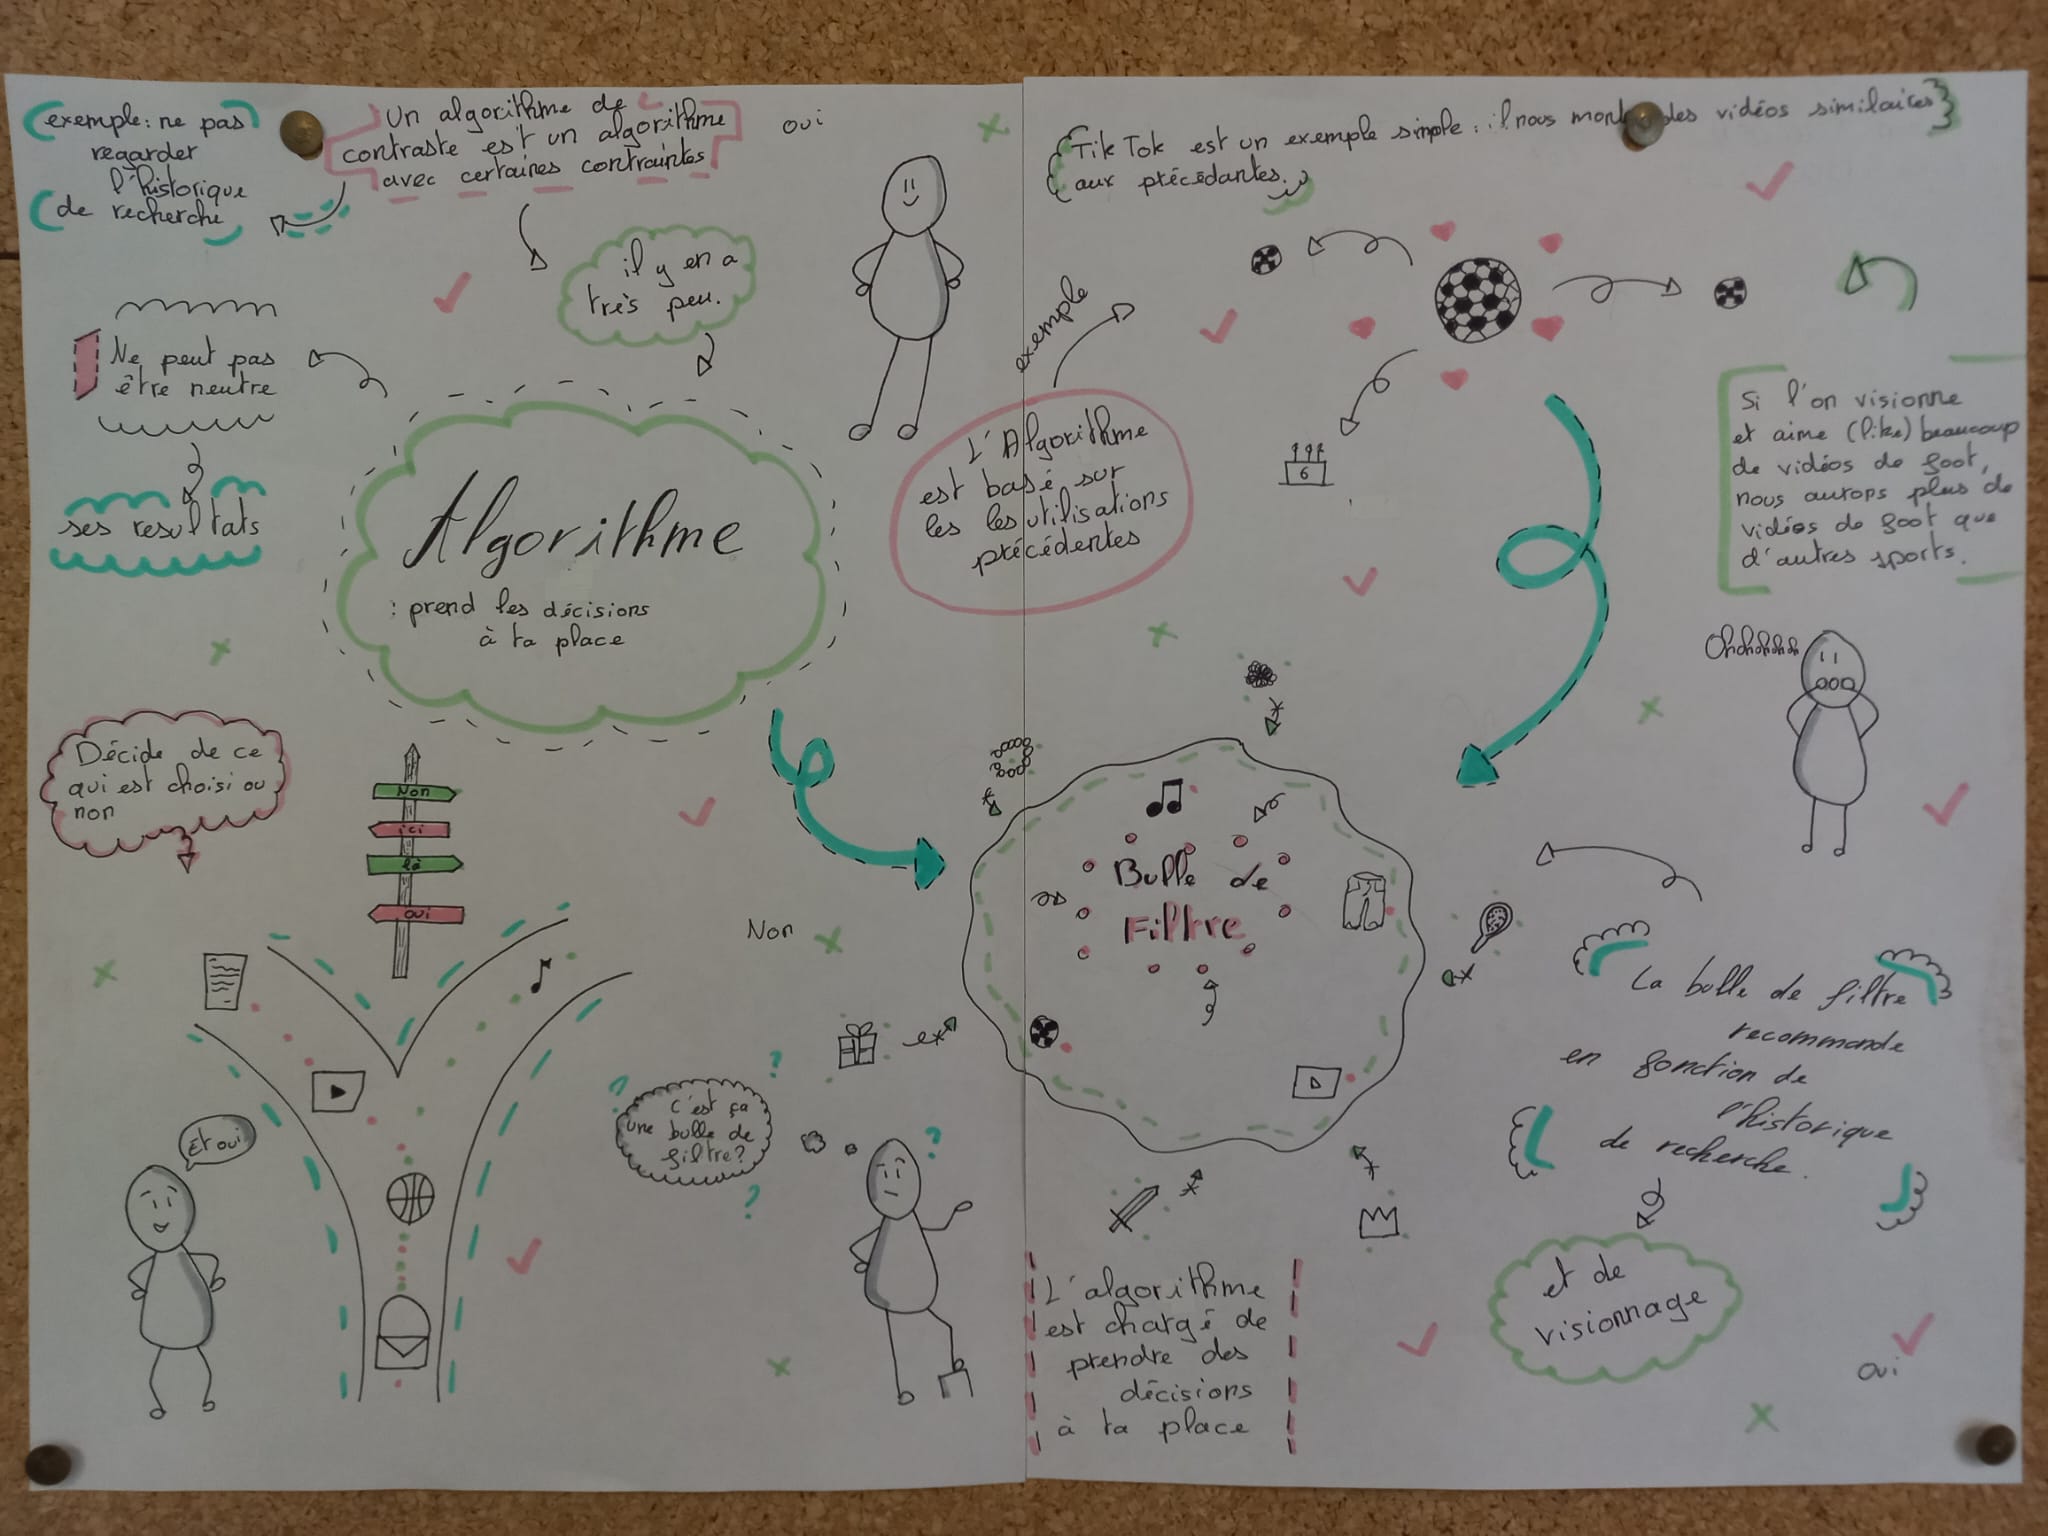 exemple: ne pas
regarder
l'historique
de recherche
Un algorithme de
contraste est un algorithme
avec certaines contraintes
oui
il y en a
très peu.
Ne peut pas
être neutre
ses resultats
Algorithme
: prend les décisions
à ta place
Décide de ce
qui est choisi ou
non
Non
ici
là
oui
Et oui
Non
C'est ça
une bulle de
filtre?
TikTok est un exemple simple: il nous des vidéos similaires
aux précédantes.
exemple
L'Algorithme
est basé sur
les les utilisations
précédentes
6
Si l'on visionne
et aime (like) beaucoup
de vidéos de foot,
nous aurons plus de
vidéos de foot que
d'autres sports.
Ohhhhhhh
Bulle de
Filtre
La bulle de filtre
recommande
en fonction de
l'historique
de recherche.
et de
visionnage
L'algorithme
est chargé de
prendre des
décisions
à ta place
oui